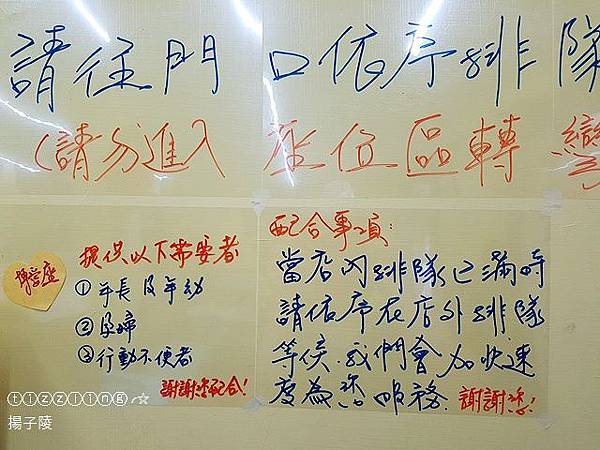 請往門口依序排隊
(請勿進入座位區轉彎
博愛座
提供以下需要者
①年長及年幼
②孕婦
③行動不便者
謝謝您配合!
配合事項:
當店內排隊已滿時
請依序在店外排隊
等侯.我們會加快速
度為您服務. 謝謝您!
tizzling.☆
揚子陵